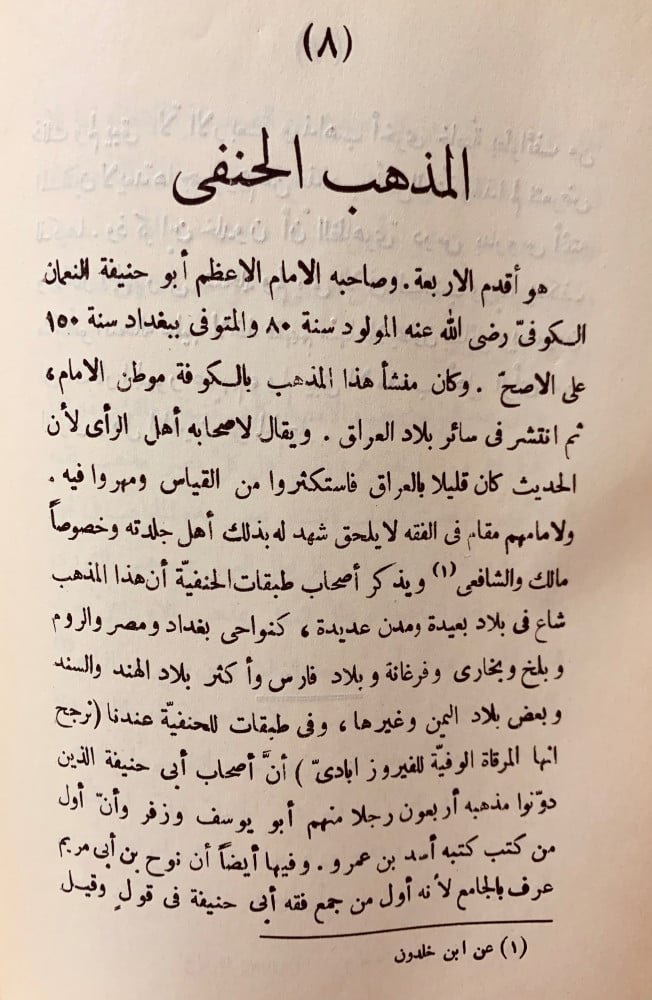 (٨)
المذهب الحنفى
هو أقدم الاربعة . وصاحبه الامام الاعظم أبو حنيفة النعمان
الكوفىّ رضى الله عنه المولود سنة ٨٠ والمتوفى ببغداد سنة ١٥٠
على الاصحّ . وكان منشأ هذا المذهب بالكوفة موطن الامام ،
ثم انتشر فى سائر بلاد العراق . ويقال لاصحابه أهل الرأى لأن
الحديث كان قليلا بالعراق فاستكثروا من القياس ومهروا فيه .
ولامامهم مقام فى الفقه لا يلحق شهد له بذلك أهل جلدته وخصوصاً
مالك والشافعى (١) ويذكر أصحاب طبقات الحنفيّة أن هذا المذهب
شاع فى بلاد بعيدة ومدن عديدة ، كنواحى بغداد ومصر والروم
وبلخ وبخارى وفرغانة وبلاد فارس وأكثر بلاد الهند والسند
وبعض بلاد اليمن وغيرها ، وفى طبقات للحنفيّة عندنا (نرجح
انها المرقاة الوفيّة للفيروز ابادىّ ) أنَّ أصحاب أبى حنيفة الذين
دوّنوا مذهبه أربعون رجلا منهم أبو يوسف وزفر وأنّ أول
من كتب كتبه أسد بن عمرو . وفيها أيضاً أن نوح بن أبى مريم
عرف بالجامع لأنه أول من جمع فقه أبى حنيفة فى قولٍ وقيل
(١) عن ابن خلدون